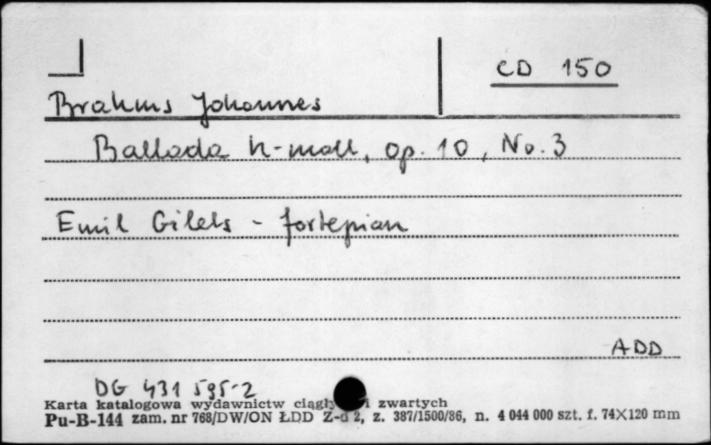 CD 150
Brahms Johannes
Ballada h-moll, op. 10, No. 3
Emil Gilels - fortepian
ADD
DG 431 595-2
Karta katalogowa wydawnictw ciągły i zwartych
Pu-B-144 zam. nr 768/DW/ON ŁDD Z-d 2, z. 387/1500/86, n. 4 044 000 szt. f. 74X120 mm